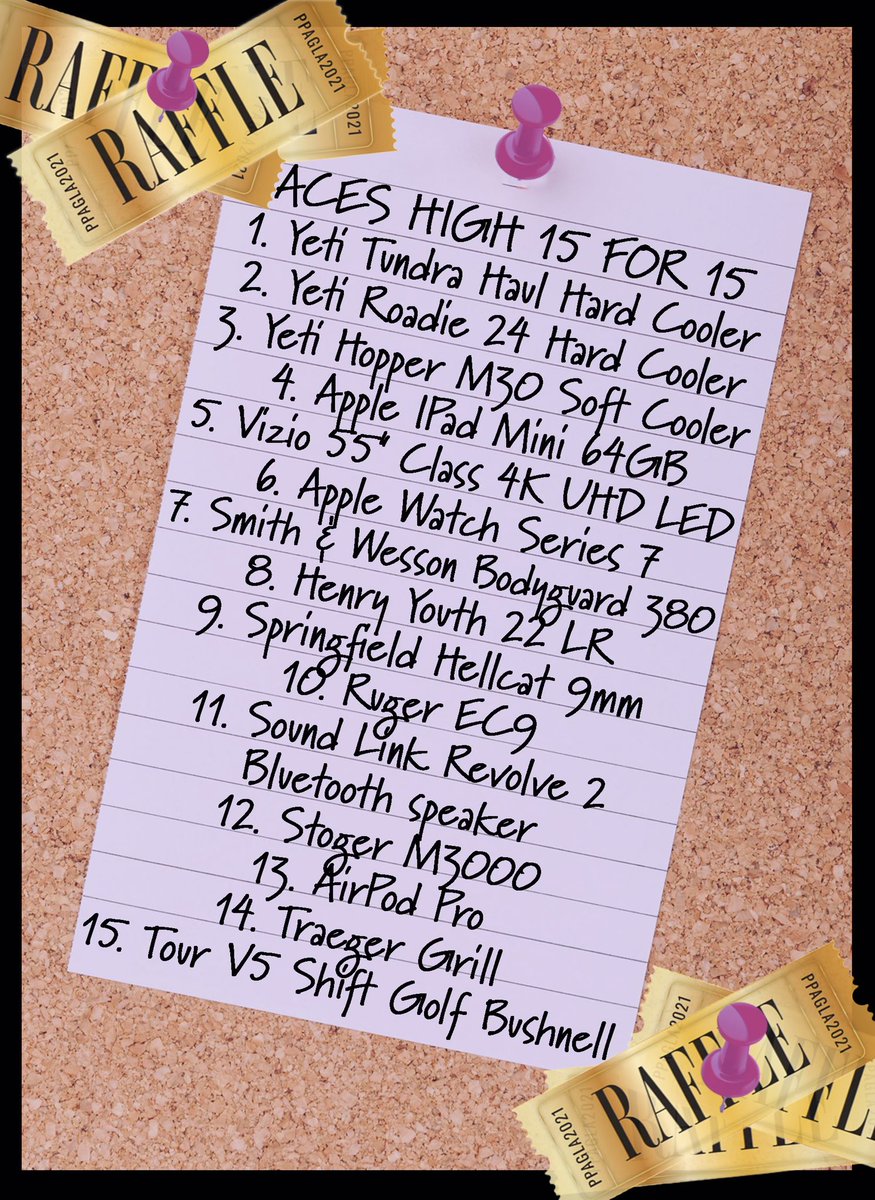 RAFFLE
RAFFLE
PPAGLA2021
PPAGLA2021
2021
ACES HIGH 15 FOR 15
1. Yeti Tundra Haul Hard Cooler
2. Yeti Roadie 24 Hard Cooler
3. Yeti Hopper M30 Soft Cooler
4. Apple IPad Mini 64GB
5. Vizio 55" Class 4K UHD LED
6. Apple Watch Series 7
7. Smith & Wesson Bodyguard 380
8. Henry Youth 22 LR
9. Springfield Hellcat 9mm
10. Ruger EC9
11. Sound Link Revolve 2
Bluetooth speaker
12. Stoger M3000
13. AirPod Pro
14. Traeger Grill
15. Tour V5 Shift Golf Bushnell
2021
PPAGLA2021
RAFFLE
RAFFLE
PPAGLA2021